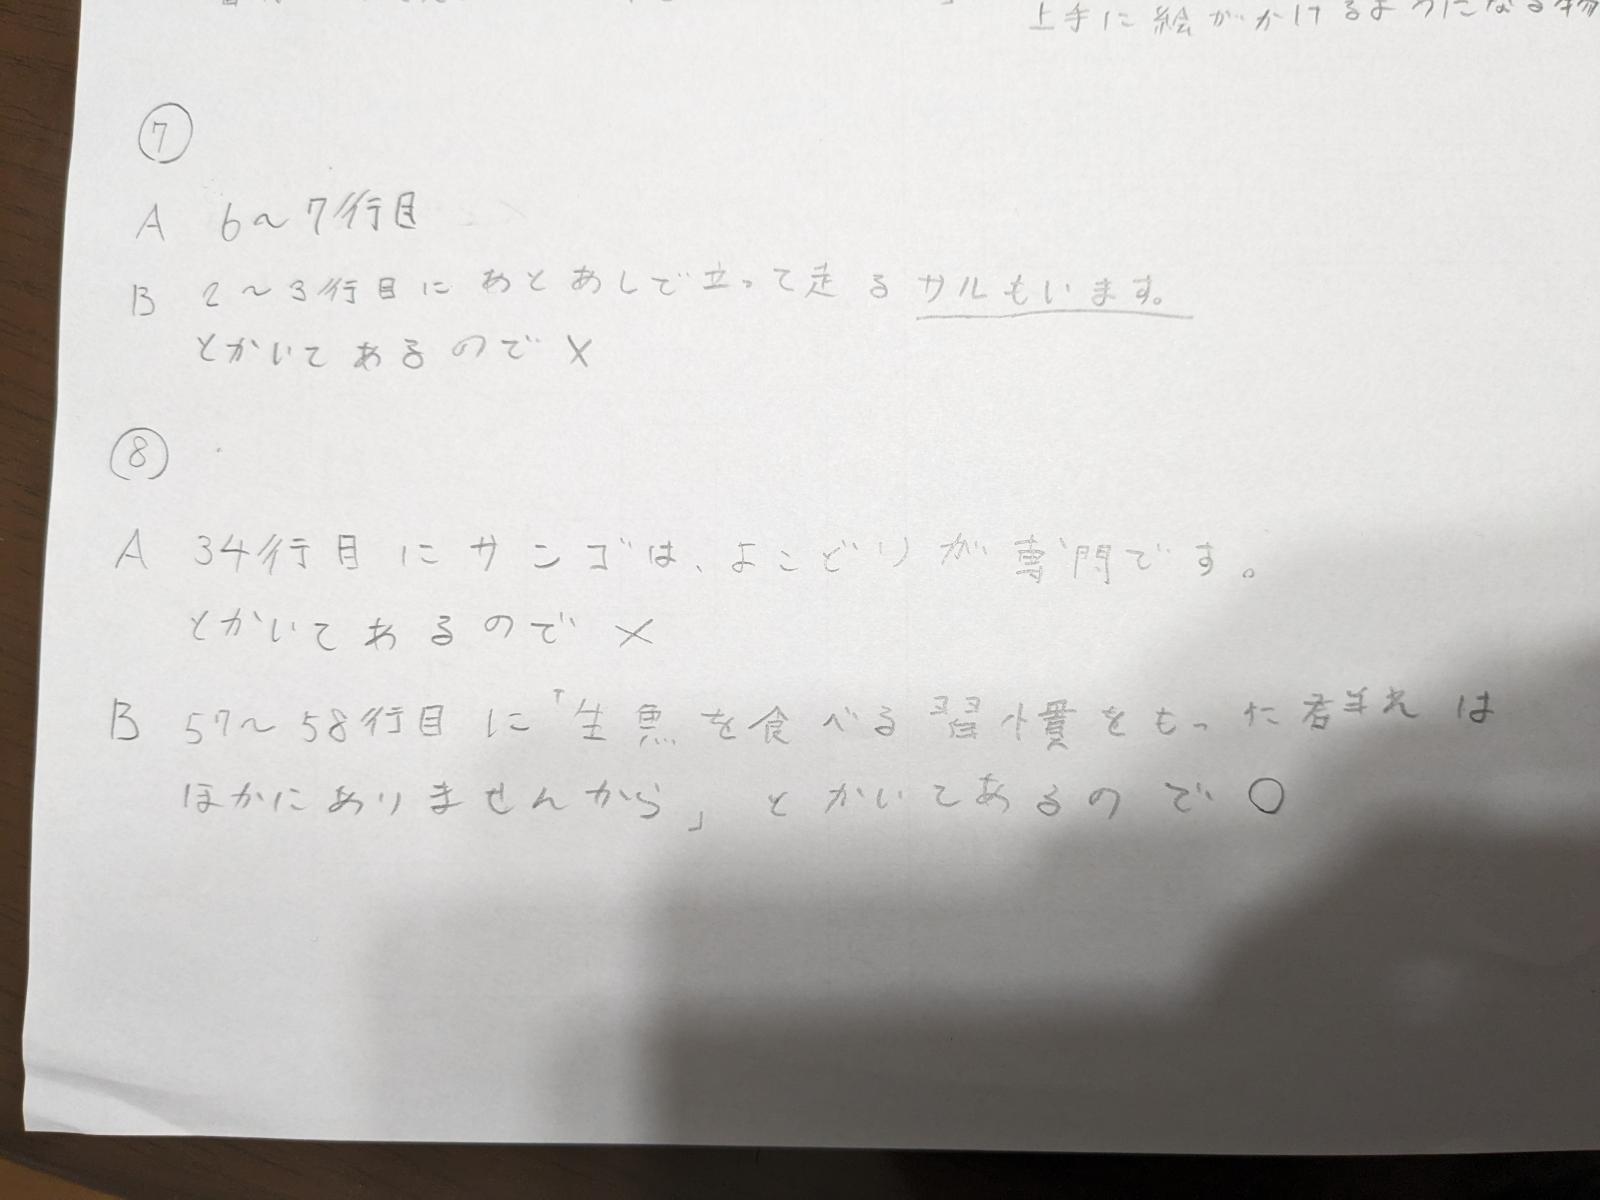 上手に絵がかけるようになる物
⑦
A 6〜7行目
B 2〜3行目に あとあしで立って走る サルもいます。
とかいてあるので ×
⑧
A 34行目に サンゴは、よこどりが専門です。
とかいてあるので ×
B 57〜58行目に「生魚を食べる習慣をもった群れは
ほかにありませんから」とかいてあるので ○